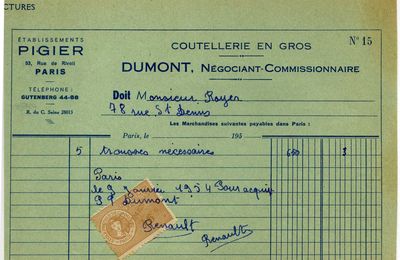 CTURES
ÉTABLISSEMENTS
PIGIER
53, Rue de Rivoli
PARIS
TÉLÉPHONE :
GUTENBERG 44-88
R. du C. Seine 28013
COUTELLERIE EN GROS
N° 15
DUMONT, NÉGOCIANT-COMMISSIONNAIRE
Doit Monsieur Royer
78 rue St Denis
Les Marchandises suivantes payables dans Paris :
Paris, le 195
5 trousses nécessaires 600 3
Paris
le 9 Janvier 1954 Pour acquit
Pr Dumont
Renault
Renault